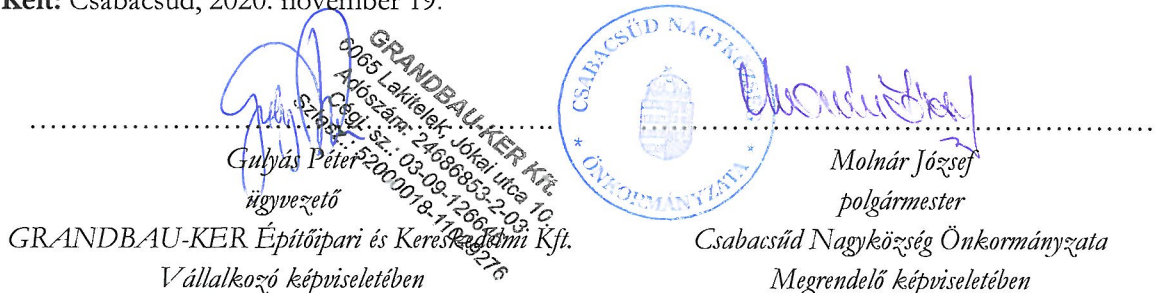 Kelt: Csabacsűd, 2020. november 19.
GRANDBAU-KER Kft.
6065 Lakitelek, Jókai utca 10.
Adószám: 24686853-2-03.
Cégj. sz.: 03-09-
CSABACSŰD NAGYKÖZSÉG
* ÖNKORMÁNYZATA *
Gulyás Péter
ügyvezető
GRANDBAU-KER Építőipari és Kereskedelmi Kft.
Vállalkozó képviseletében
Molnár József
polgármester
Csabacsűd Nagyközség Önkormányzata
Megrendelő képviseletében